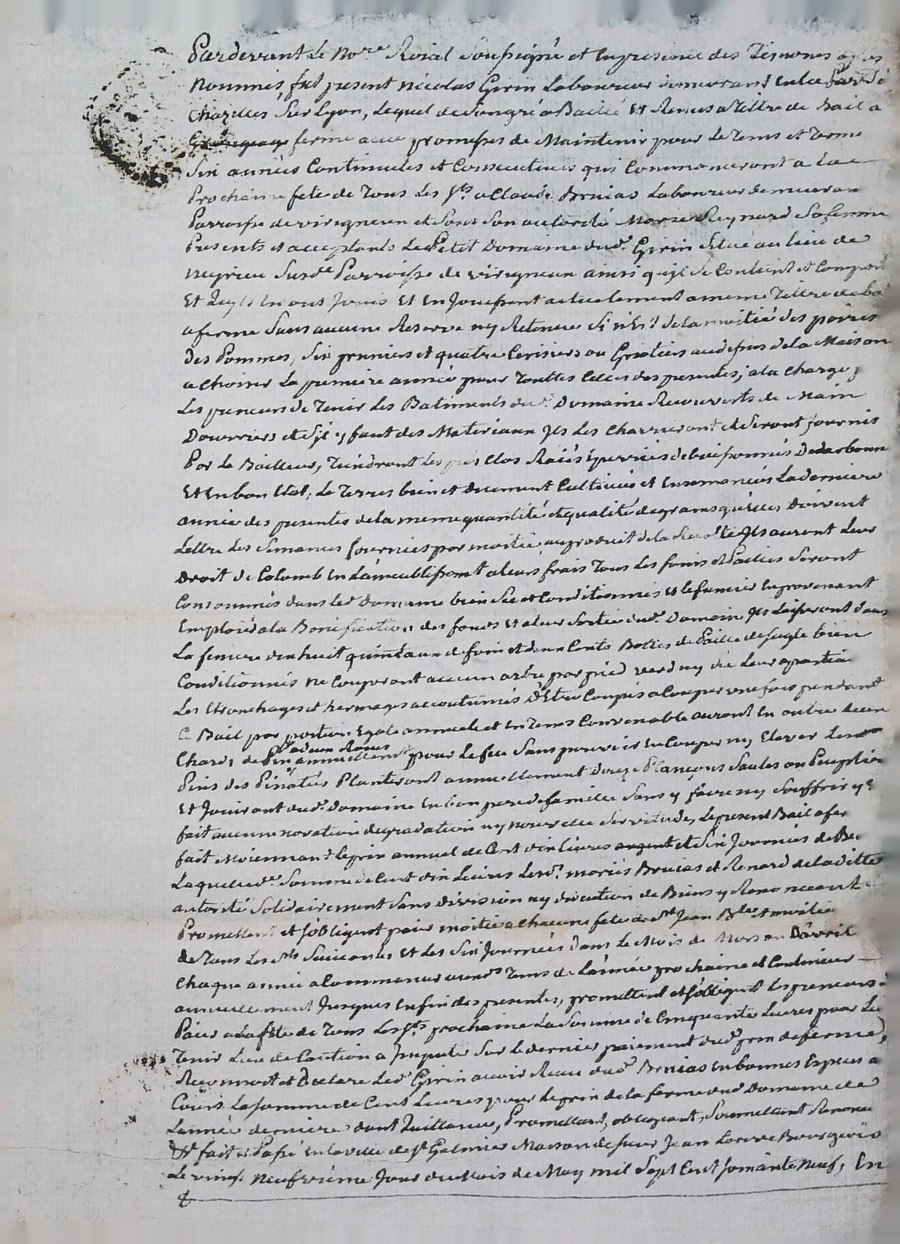 Pardevant le Nore Roial Soussigné et En presence des Temoins apres
Nommés, fut present Nicolas Girin Laboureur demeurant
Chazelles Sur Lyon, Lequel de Son gré a Baillé Et Remis a Tittre de Bail a
ferme avec promesses de Maintenir pour le Tems et Terme
Six années Continuelles et Consecutives qui Commanceront a La
Prochaine fete de Tous Les Sts a Claude Bruias Laboureur demeurant
Parroisse de virigneux et Sous Son autorité Marie Reynard Sa femme
Presents et acceptants Le Petit Domaine dud. Girin Scitué au lieu de
Susde Parroisse de virigneux ainsi qu'il Se Contient et Comporte
Et En ont Jouis Et En Jouissent actuelement a meme Tittre de bail
a ferme Sans aucune Reserve ny Retenue Si n'Est de la moitié des poires
des Pommes, Six pruniers et quatre Cerisiers ou Griotiers audessus de la Maison
a Choisir La premiere année pour Touttes Celles des presentes, a la Charge
Les preneurs de Tenir Les Batiments dud. Domaine Recouverts de Main
Douvriers et S'il y faut des Materiaux Ils Les Charrieront et Seront fournis
Par Le Bailleur, Tiendront Les prés Clos Raiés Epierrés debuissonnés
Et En bon Etat, Le Terres bien et Duement Cultivées et Ensemencées La derniere
année des presentes de la meme quantité et qualité de grains qu'elles Doivent
Lettre Les Semances fournies par moitié au produit de la Recolte Ils auront Leur
Droit de Colomb En Lameublissant a leurs frais Tous Les foins et Pailles Seront
Consommés dans Led. Domaine bien Sec et Conditionnés et le fumier En provenant
Emploié a la Bonification des fonds Et a leur Sortie dud. Domaine Ils Laisseront dans
La feniere dixhuit quintaux de foin et deux Cents Bottes de Paille de Seigle bien
Conditionnés ne Couperont aucun arbre par pied verd ny Sec Leur apartiendra
Les Etronchages et hermages accoutumés D'Etre Coupés a Couper une fois pendant
Ce Bail par portion Egale annuele et En Tems Convenable auront En outre deux
Chards de Pin annuellement pour le feu Sans pouvoir En Couper ny Elever
Pins des Pinatés Planteront annuellement Douze Plançons Saules ou Peuplier
Et Jouiront dud. Domaine En bon pere de famille Sans y faire ny Souffrir y Etre
fait aucune novation degradation ny nouvelle Servitude, Le present Bail a fer
fait Moiennant Le prix annuel de Cent dix Livres argent et Six Journées de
Laquelle de. Somme de Cent dix Livres Lesd. mariés Bruias et Renard de laditte
autorité Solidairement Sans division ny discution de Biens y Renonceant
Promettent et S'obligent paier moitié a Chacune fete de St Jean Bte et moitié
de Tous Les Sts Suivantes Et Les Six Journées dans Le Mois de Mars ou D'avril
Chaque année a Commencer auxds Tems de L'année prochaine et Continuer
annuellement Jusques En fin des presentes, promettent et S'obligent Les preneurs
Paier a La fete de Tous Les Sts prochaine La Somme de Cinquante Livres pour Lui
Tenir Lieu de Caution a Imputer Sur le dernier paiement dud. prix de ferme,
Reconnoit et Declare Led. Girin avoir Reçu dud. Bruias En bonnes Especes a
Cours La Somme de Cent Livres pour Le prix de la ferme dud. Domaine de
L'année derniere dont Quittance, Promettant, obligeant, Soumettant Renonc
Et fait et Passé En la ville de St Galmier Maison de Sieur Jean Bourgeois
Le vingt Neufvième Jour du Mois de May mil Sept Cent Soixante Neuf, En